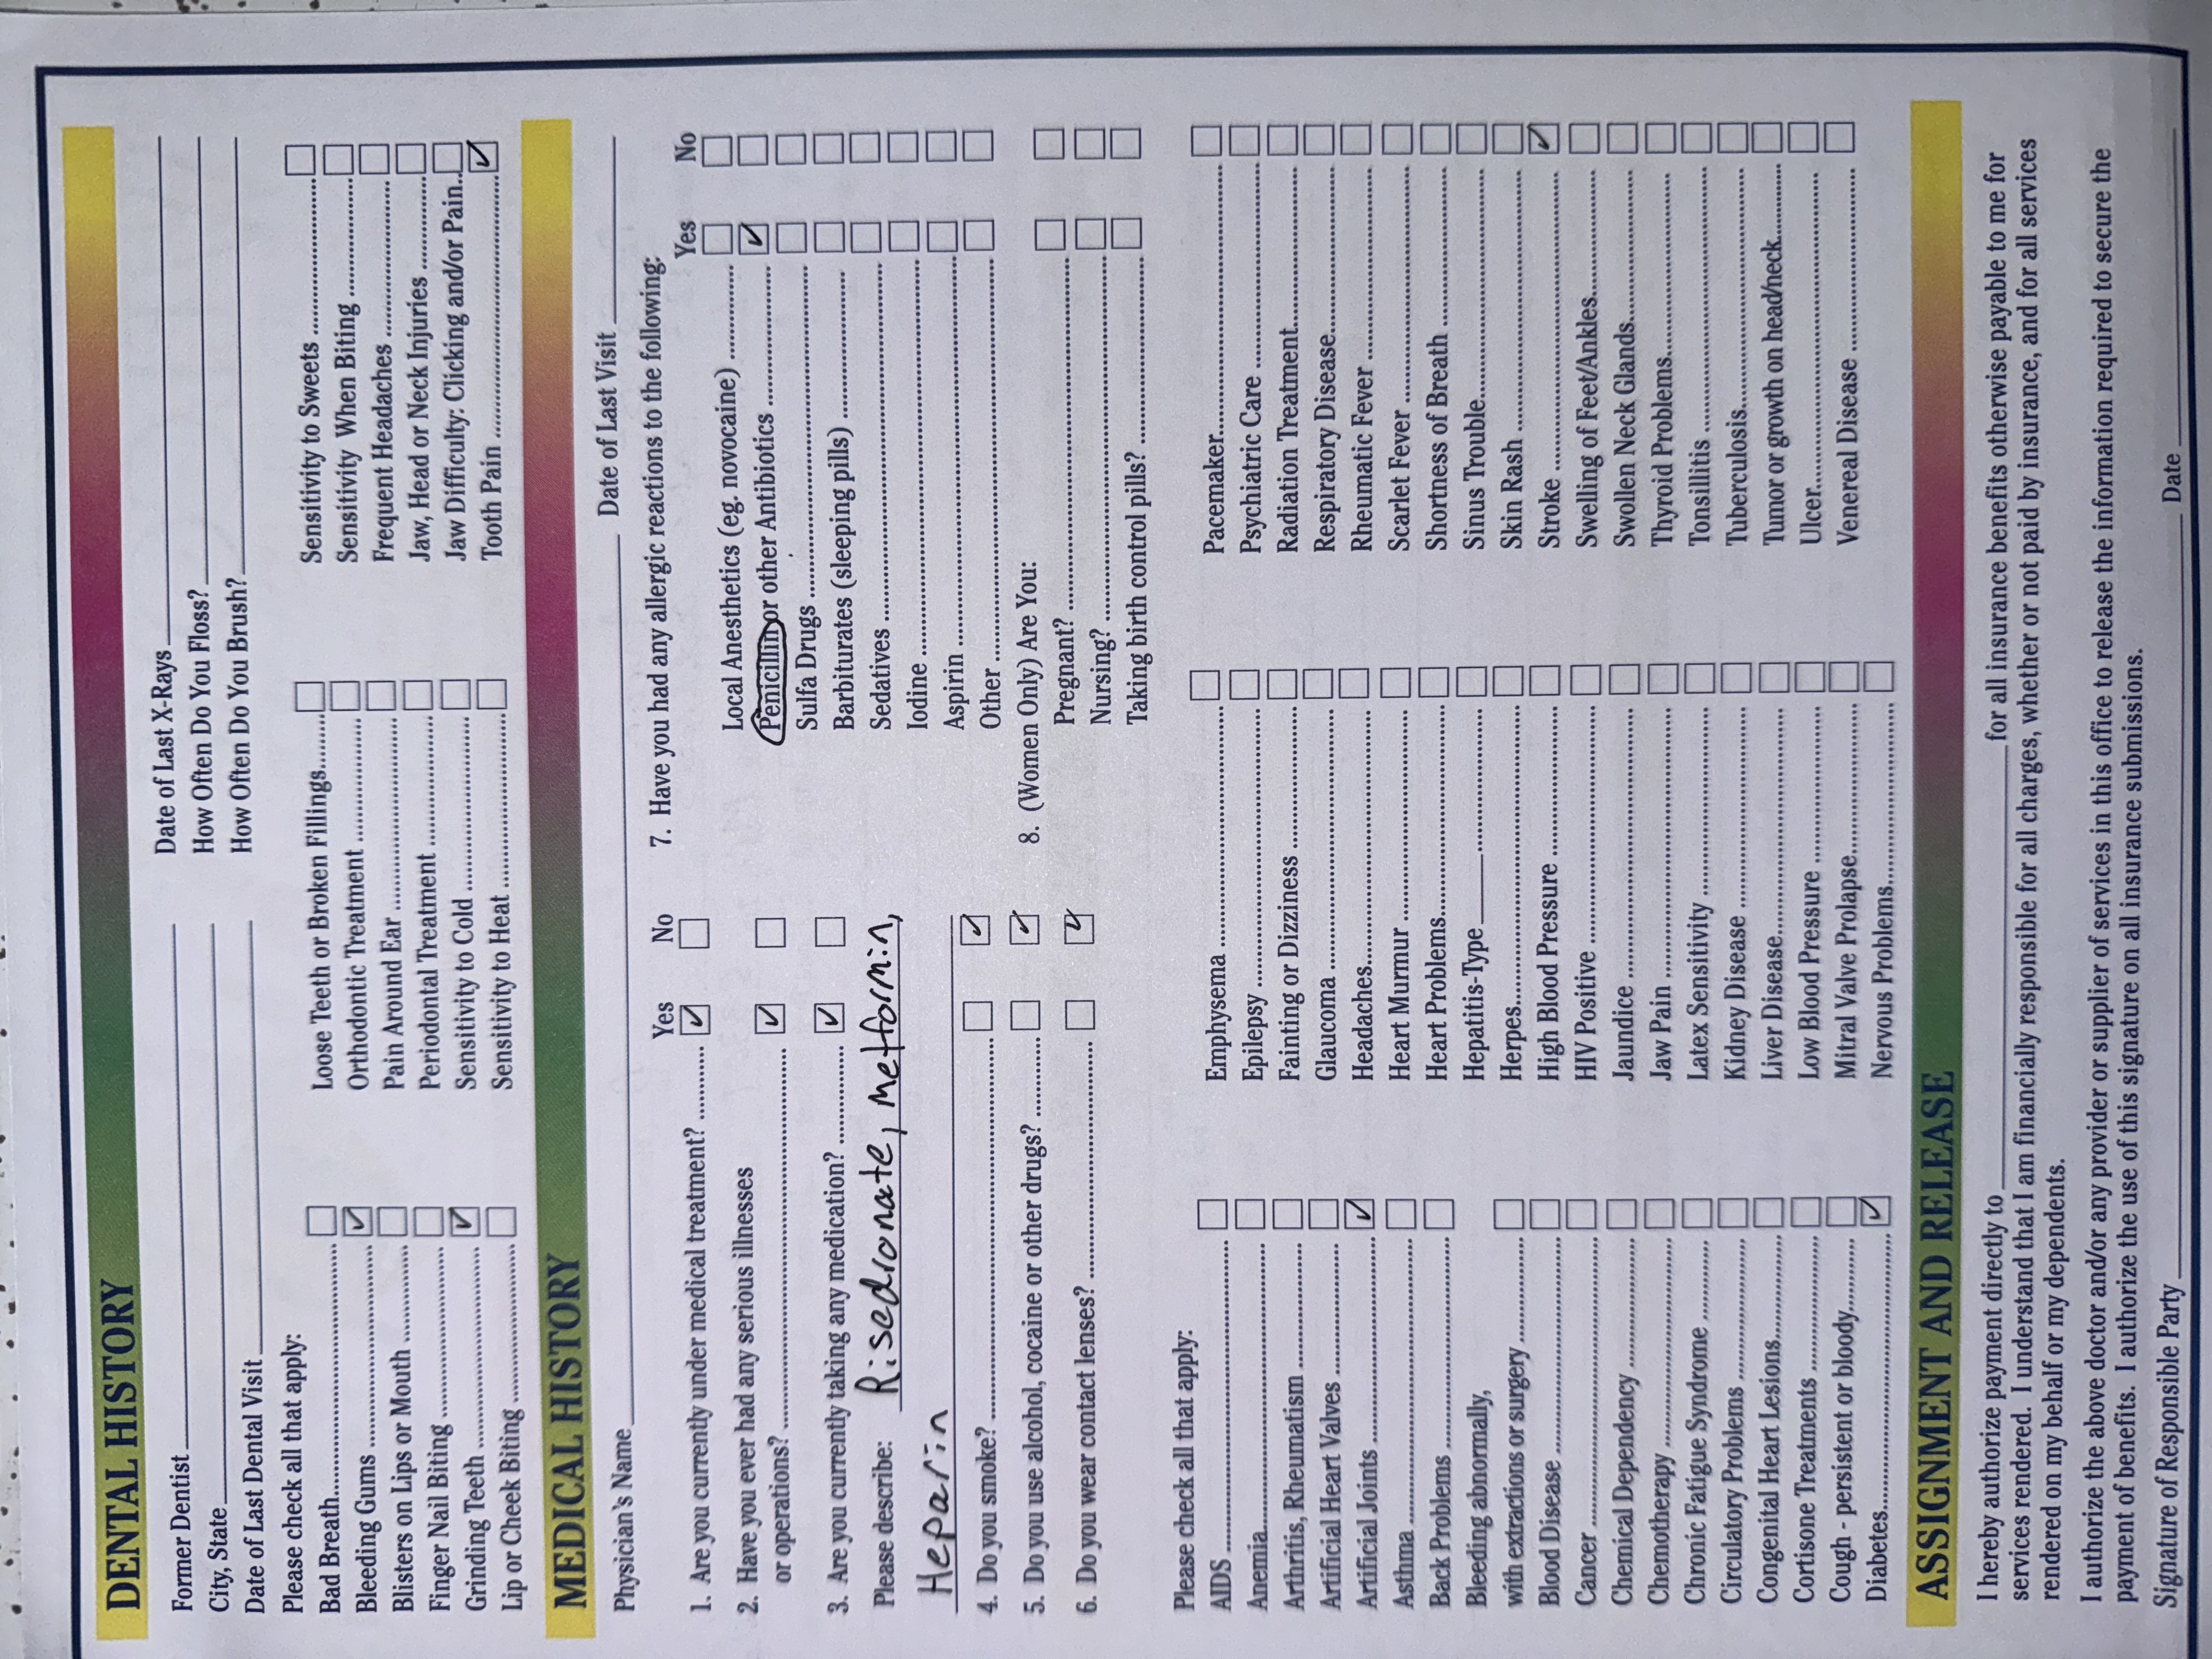 DENTAL HISTORY
Former Dentist
City, State
Date of Last Dental Visit
Date of Last X-Rays
How Often Do You Floss?
How Often Do You Brush?
Please check all that apply:
Bad Breath
Bleeding Gums ✓
Blisters on Lips or Mouth
Finger Nail Biting
Grinding Teeth ✓
Lip or Cheek Biting
Loose Teeth or Broken Fillings
Orthodontic Treatment
Pain Around Ear
Periodontal Treatment
Sensitivity to Cold
Sensitivity to Heat
Sensitivity to Sweets
Sensitivity When Biting
Frequent Headaches
Jaw, Head or Neck Injuries
Jaw Difficulty: Clicking and/or Pain
Tooth Pain ✓
MEDICAL HISTORY
Physician's Name Date of Last Visit
Yes No
1. Are you currently under medical treatment? ✓
2. Have you ever had any serious illnesses
or operations? ✓
3. Are you currently taking any medication? ✓
Please describe: Risedronate, Metformin,
Heparin
4. Do you smoke? ✓
5. Do you use alcohol, cocaine or other drugs? ✓
6. Do you wear contact lenses? ✓
7. Have you had any allergic reactions to the following:
Yes No
Local Anesthetics (eg. novocaine)
Penicillin or other Antibiotics ✓
Sulfa Drugs
Barbiturates (sleeping pills)
Sedatives
Iodine
Aspirin
Other
8. (Women Only) Are You:
Pregnant?
Nursing?
Taking birth control pills?
Please check all that apply:
AIDS
Anemia
Arthritis, Rheumatism
Artificial Heart Valves
Artificial Joints ✓
Asthma
Back Problems
Bleeding abnormally,
with extractions or surgery
Blood Disease
Cancer
Chemical Dependency
Chemotherapy
Chronic Fatigue Syndrome
Circulatory Problems
Congenital Heart Lesions
Cortisone Treatments
Cough - persistent or bloody
Diabetes ✓
Emphysema
Epilepsy
Fainting or Dizziness
Glaucoma
Headaches
Heart Murmur
Heart Problems
Hepatitis-Type
Herpes
High Blood Pressure
HIV Positive
Jaundice
Jaw Pain
Latex Sensitivity
Kidney Disease
Liver Disease
Low Blood Pressure
Mitral Valve Prolapse
Nervous Problems
Pacemaker
Psychiatric Care
Radiation Treatment
Respiratory Disease
Rheumatic Fever
Scarlet Fever
Shortness of Breath
Sinus Trouble
Skin Rash
Stroke ✓
Swelling of Feet/Ankles
Swollen Neck Glands
Thyroid Problems
Tonsillitis
Tuberculosis
Tumor or growth on head/neck
Ulcer
Venereal Disease
ASSIGNMENT AND RELEASE
I hereby authorize payment directly to for all insurance benefits otherwise payable to me for
services rendered. I understand that I am financially responsible for all charges, whether or not paid by insurance, and for all services
rendered on my behalf or my dependents.
I authorize the above doctor and/or any provider or supplier of services in this office to release the information required to secure the
payment of benefits. I authorize the use of this signature on all insurance submissions.
Signature of Responsible Party Date